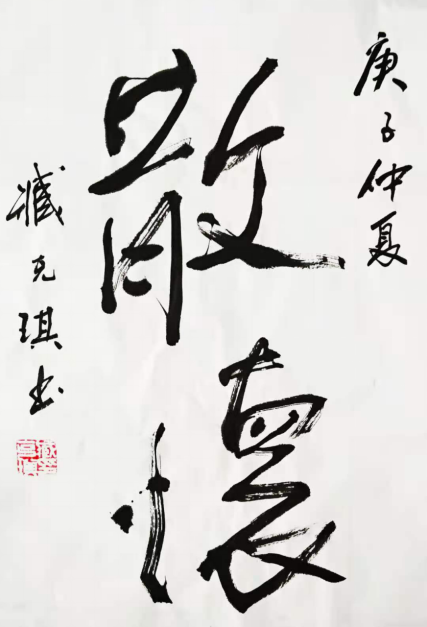 庚子仲夏
散懷
臧克琪书